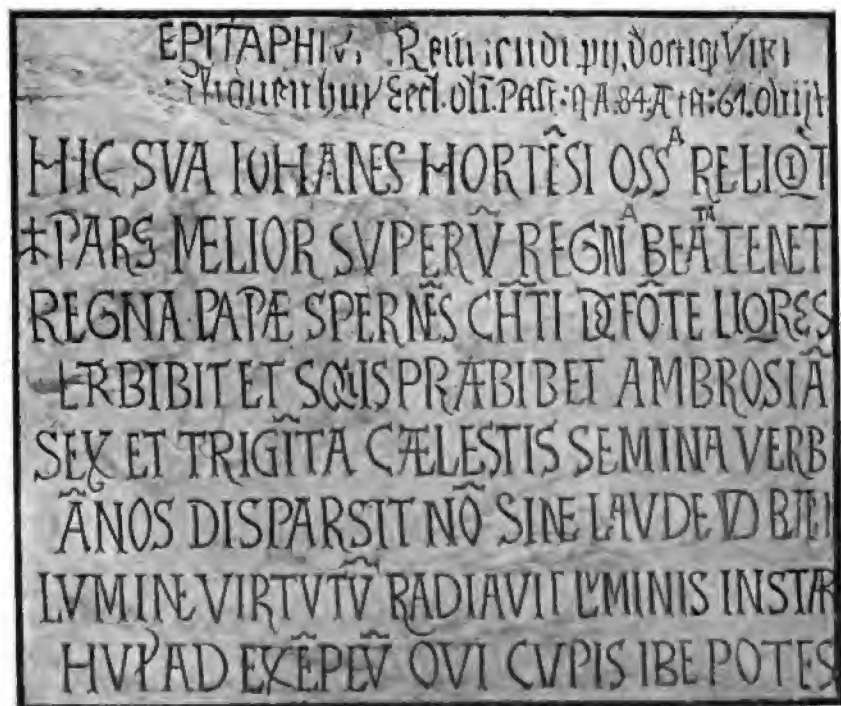 EPITAPHIV̄. Viri
Eccl. Past: A.84. Æ tA:61. obijt
HIC SVA IOHANES HORTẼSI OSSA RELIQ̃T
‡PARS MELIOR SVPERṼ REGNA BEATÃ TENET
REGNA·PAPÆ SPERNẼS CH̃TI DE FÕTE LIQORES
ERBIBIT ET SQUIS PRÆBIBET AMBROSIÃ
SEX ET TRIGĨTA CÆLESTIS SEMINA VERB
ÃNOS DISPARSIT NÕ SINE LAVDE
LVMINE VIRTVTṼ RADIAVIT LVMINIS INSTAR
HVỊ AD EXẼPLṼ QVI CVPIS IBE POTES